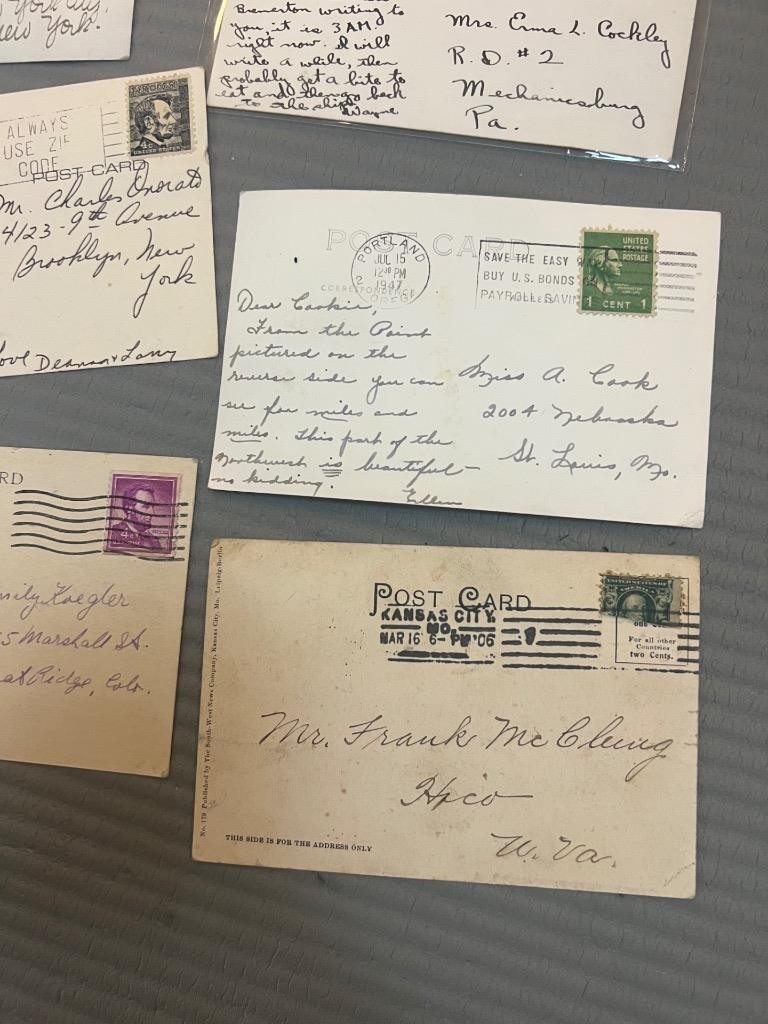 New York.
Bremerton writing to
you, it is 3 A.M.
right now. I will
write a while, then
probably get a bite to
eat and then go back
to the ship.
Wayne
Mrs. Erma L. Cockley
R.D. #2
Mechanicsburg
Pa.
ALWAYS
USE ZIP
CODE
4¢
UNITED STATES
POST CARD
Mr. Charles Onorato
4123-9th Avenue
Brooklyn, New
York
Love Deanna & Larry
POST CARD
CORRESPONDENCE
PORTLAND
JUL 15
12 30 PM
1947
2 OREG.
SAVE THE EASY
BUY U.S. BONDS
PAYROLL SAVIN
UNITED
STATES
POSTAGE
1 CENT 1
Dear Cookie,
From the Point
pictured on the
reverse side you can
see for miles and
miles. This part of the
Northwest is beautiful –
no kidding.
Ellen
Miss A. Cook
2004 Nebraska
St. Louis, Mo.
RD
4¢
mily Koegler
5 Marshall St.
at Ridge, Colo.
POST CARD
KANSAS CITY,
MO.
MAR 16 6-PM '06
1
UNITED STATES OF
AMERICA
For all other
Countries
two Cents.
Mr. Frank McClung
Hico
W. Va.
No. 179 Published by The South-West News Company, Kansas City, Mo. Leipzig-Berlin
THIS SIDE IS FOR THE ADDRESS ONLY